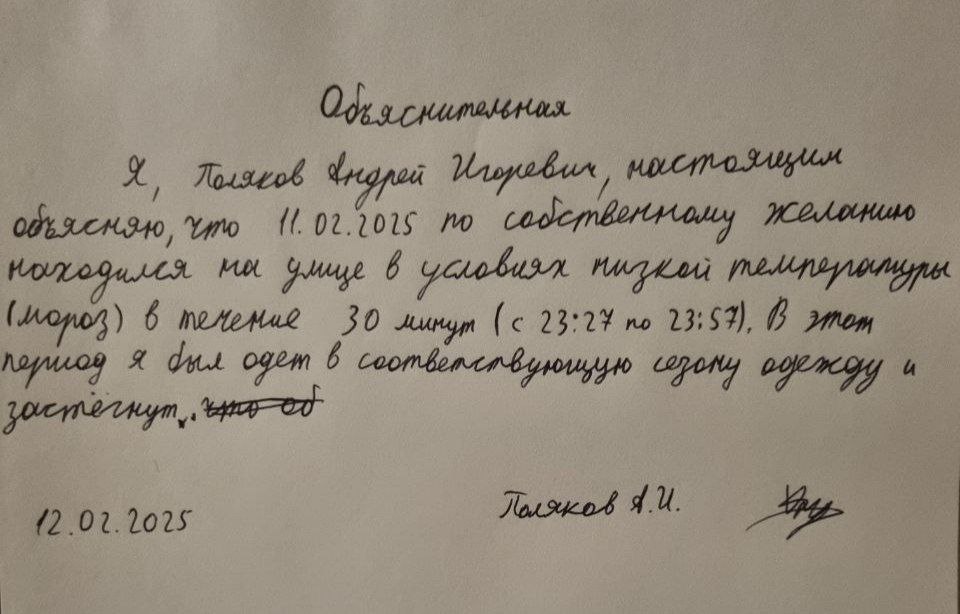 Объяснительная
Я, Поляков Андрей Игоревич, настоящим
объясняю, что 11.02.2025 по собственному желанию
находился на улице в условиях низкой температуры
(мороз) в течение 30 минут (с 23:27 по 23:57). В этот
период я был одет в соответствующую сезону одежду и
застёгнут. что об
12.02.2025 Поляков А.И.